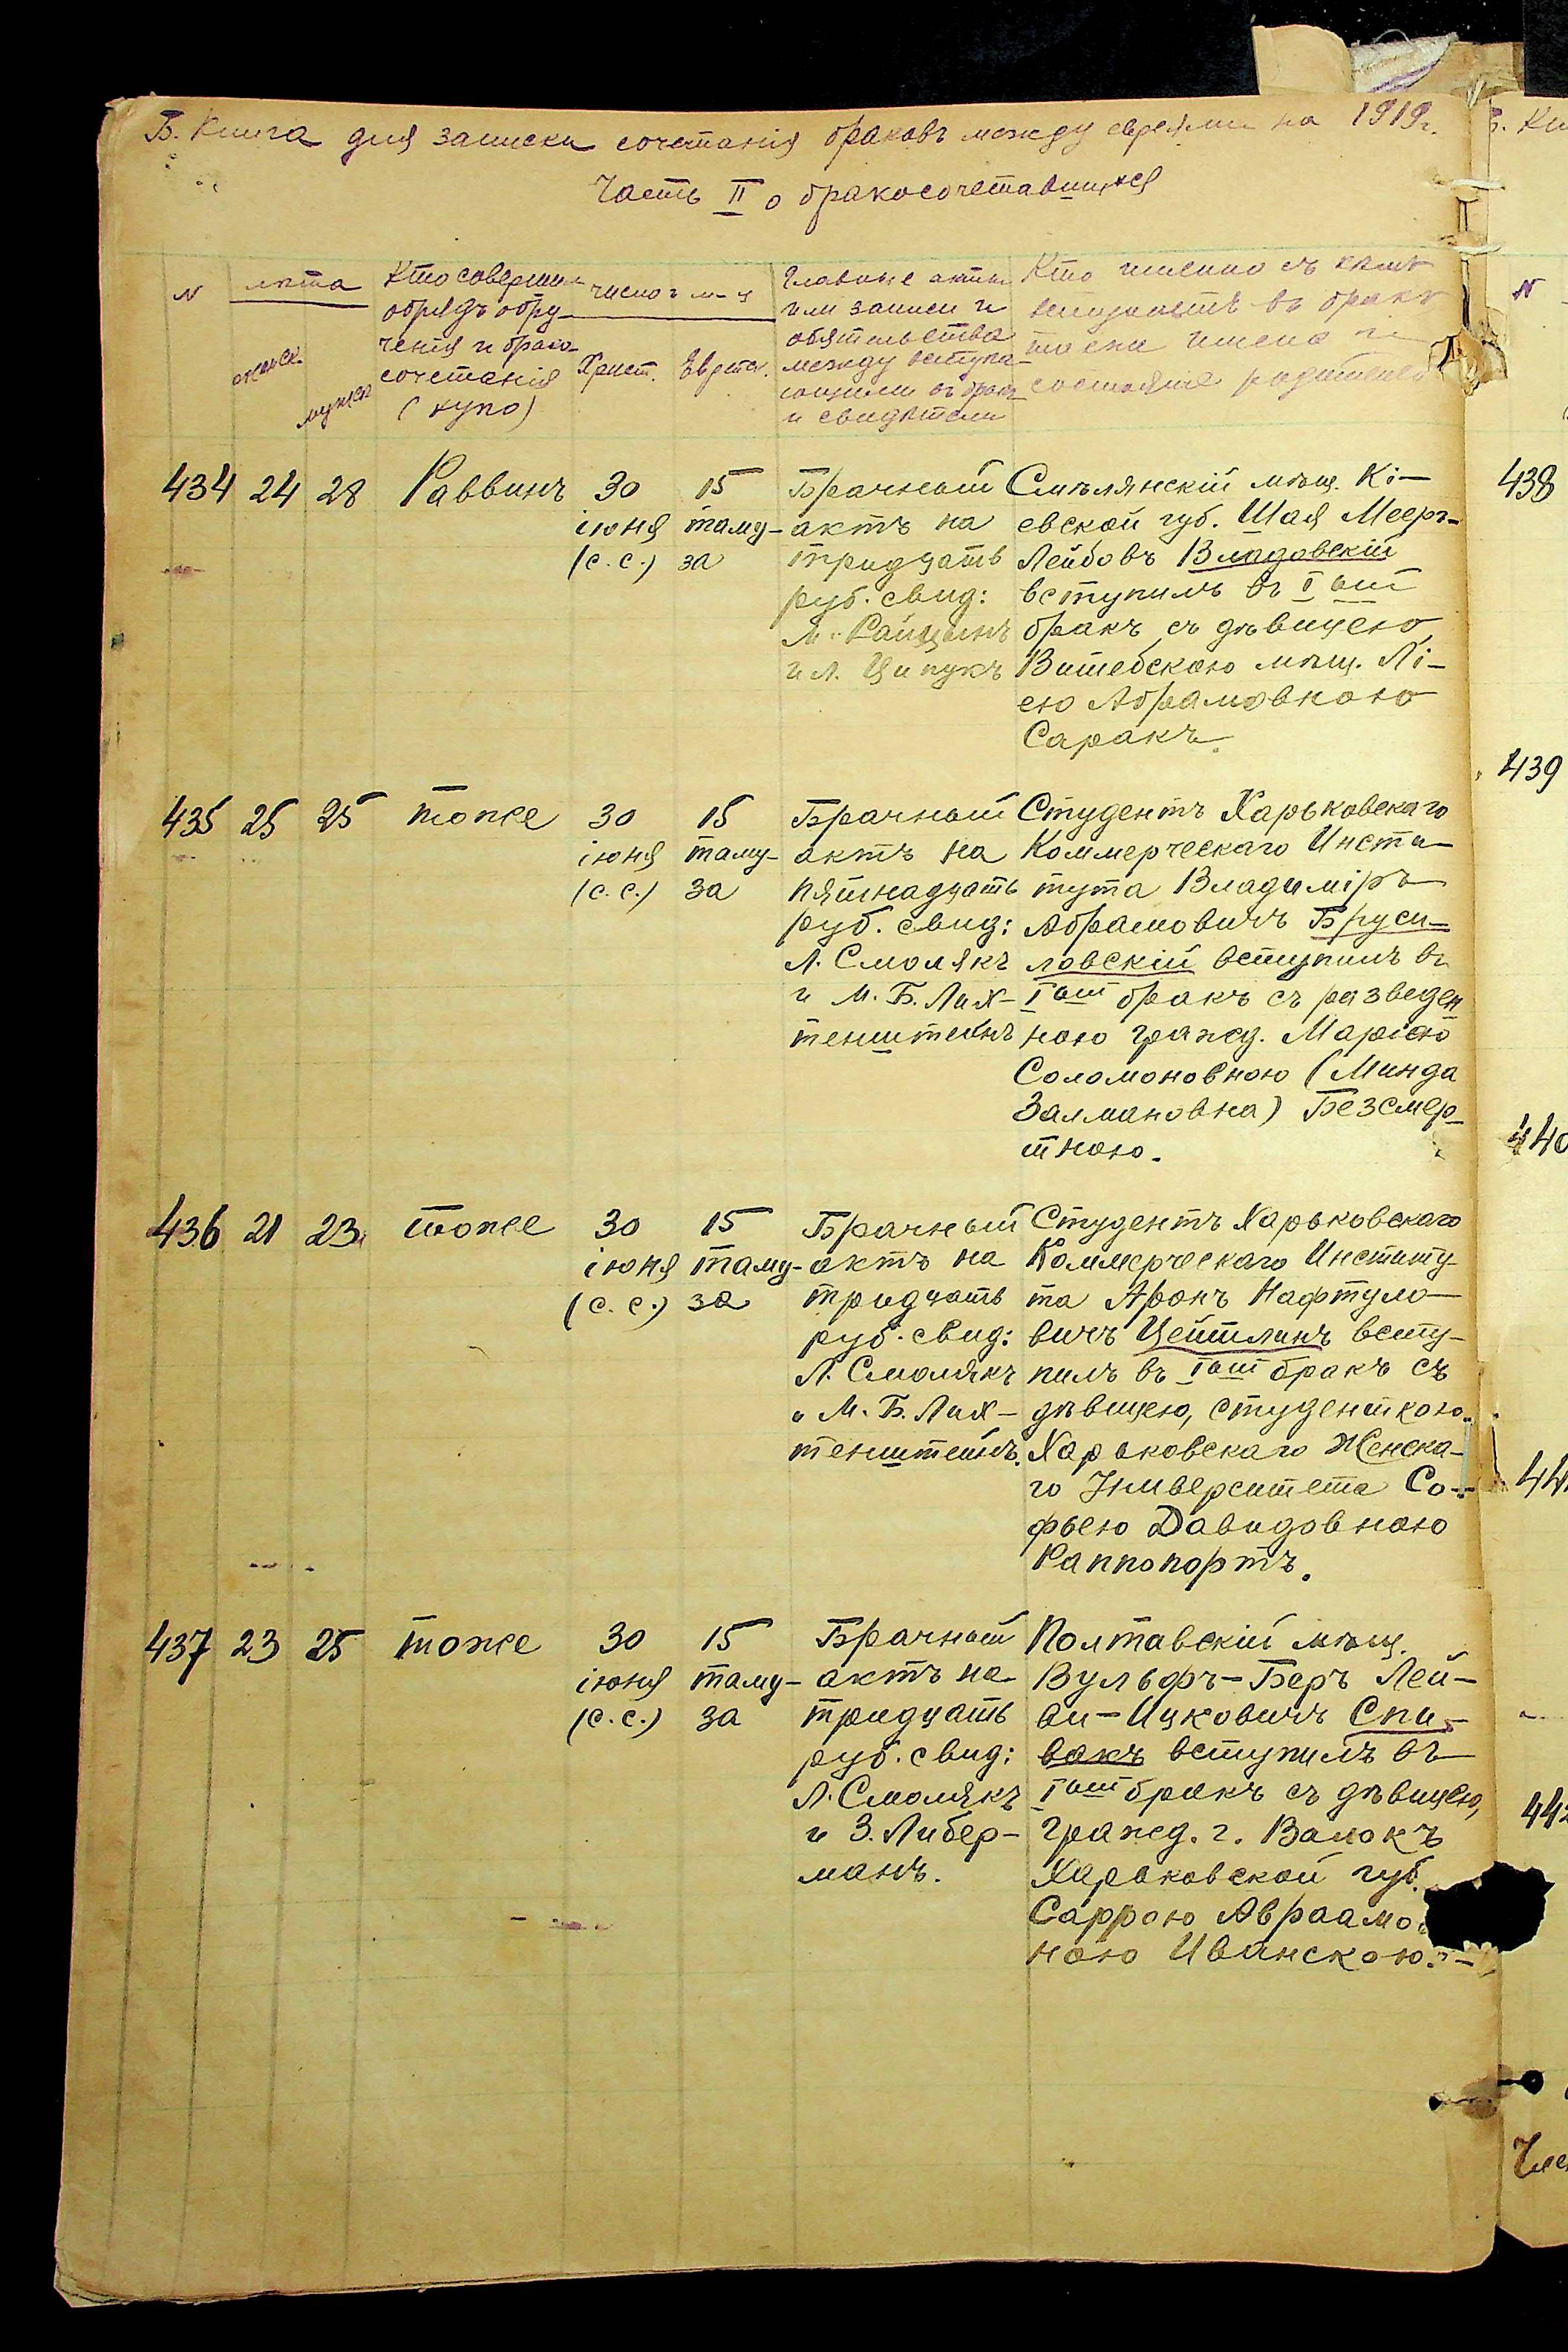 Б. Книга для записки сочетанія браковъ между евреями на 1919г.
Часть II о бракосочетавшихся
N
лѣта
женск.
мужск
Кто совершил
обрядъ обру-
ченія и брако-
сочетанія
(хупо)
число и м-ц
Христ. Еврейск.
Главные акты
или записи и
обятельства
между вступа-
ющими въ бракъ
и свидѣтели
Кто именно съ кѣмъ
вступаетъ въ бракъ
также имена и
состояніе родителей
434 24 28 Раввинъ
30
іюня
(с. с.)
15
таму-
за
Брачный
актъ на
тридцать
руб. свид:
М. Райцынъ
и Л. Ципукъ
Смѣлянскій мѣщ. Кі-
евской губ. Шая Меер-
Лейбовъ Владовскій
вступилъ въ I ый
бракъ съ дѣвицею,
Витебскою мѣщ. Лі-
ею Абрамовною
Саракъ.
435 25 25 тоже
30
іюня
(с. с.)
15
таму-
за
Брачный
актъ на
пятнадцать
руб. свид:
Л. Смолякъ
и М. Б. Лих-
тенштейнъ
Студентъ Харьковскаго
Коммерческаго Инсти-
тута Владиміръ
Абрамовичъ Бруси-
ловскій вступилъ въ
I ый бракъ съ разведен
ною гражд. Маріею
Соломоновною (Минда
Залмановна) Безсмер-
тною.
436 21 23 тоже
30
іюня
(с. с.)
15
таму-
за
Брачный
актъ на
тридцать
руб. свид:
Л. Смолякъ
и М. Б. Лих-
тенштейнъ.
Студентъ Харьковскаго
Коммерческаго Институ-
та Аронъ Нафтуло-
вичъ Цейтлинъ всту-
пилъ въ I ый бракъ съ
дѣвицею, студенткою
Харьковскаго Женска-
го Университета Со-
фьею Давидовною
Раппопортъ.
437 23 25 тоже
30
іюня
(с. с.)
15
таму-
за
Брачный
актъ на
тридцать
руб. свид:
Л. Смолякъ
и З. Либер-
манъ.
Полтавскій мѣщ.
Вульфъ-Беръ Лей-
ви-Ицковичъ Спи-
вакъ вступилъ въ
I ый бракъ съ дѣвицею,
гражд. г. Валокъ
Харьковской губ.
Саррою Авраамо
ною Иванскою.
N
438
439
440
44
44